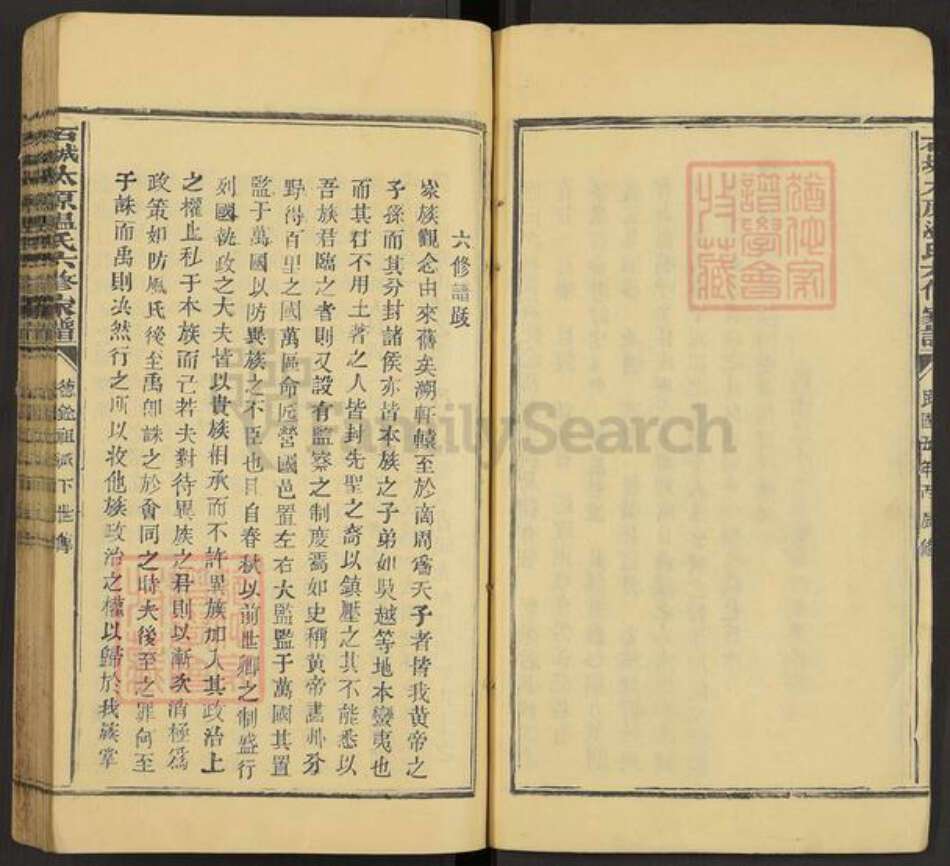 猶他家
譜學會
收藏
六修譜跋
家族觀念由來舊矣溯軒轅至於商周爲天子者皆我黃帝之
子孫而其分封諸侯亦皆本族之子弟如吳越等地本蠻夷也
而其君不用土著之人皆封先聖之裔以鎮壓之其不能悉以
吾族君臨之者則又設有監察之制度焉如史稱黃帝畫州分
野得百里之國萬區命匠營國邑置左右大監監于萬國其置
監于萬國以防異族之不臣也且自春秋以前世卿之制盛行
列國執政之大夫皆以貴族相承而不許異族加入其政治上
之權止私于本族而已若夫對待異族之君則以漸次消極爲
政策如防風氏後至禹卽誅之於會同之時夫後至之罪何至
于誅而禹則決然行之所以收他族政治之權以歸於我族掌
石城太原溫氏六修家譜
德 祖派下世傳
FamilySearch